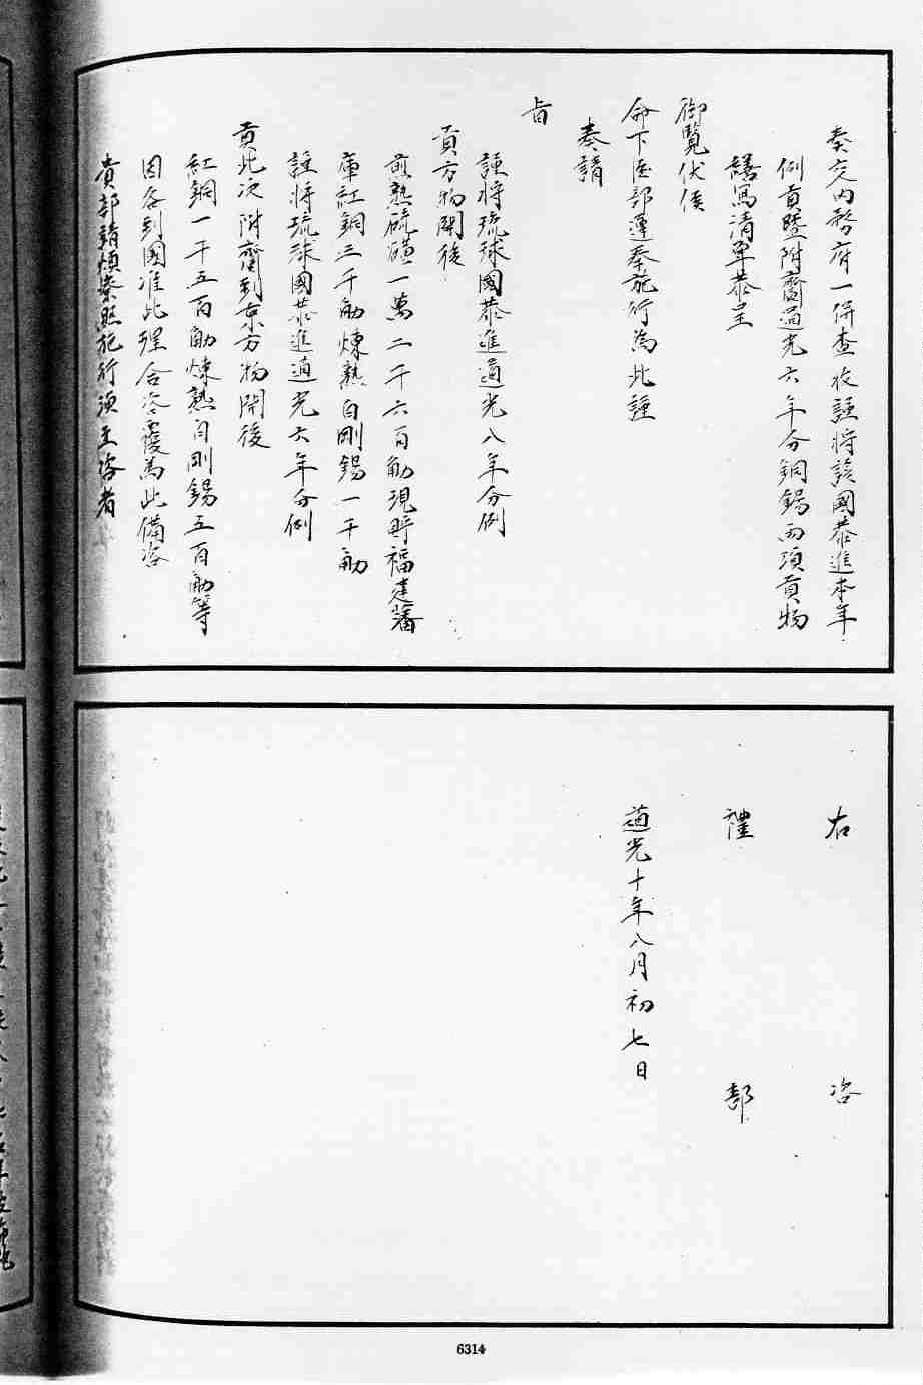 奏交內務府一併查收謹將該國恭進本年
例貢暨附齎道光六年分銅錫兩項貢物
繕寫清單恭呈
御覽伏候
命下臣部遵奉施行為此謹
奏請
旨
謹將琉球國恭進道光八年分例
貢方物開後
煎熟硫磺一萬二千六百觔現貯福建藩
庫紅銅三千觔煉熟白剛錫一千觔
謹將琉球國恭進道光六年分例
貢此次附齎到京方物開後
紅銅一千五百觔煉熟白剛錫五百觔等
因咨到國准此理合咨覆為此備咨
貴部請煩察照施行須至咨者
右咨
禮部
道光十年八月初七日
6314